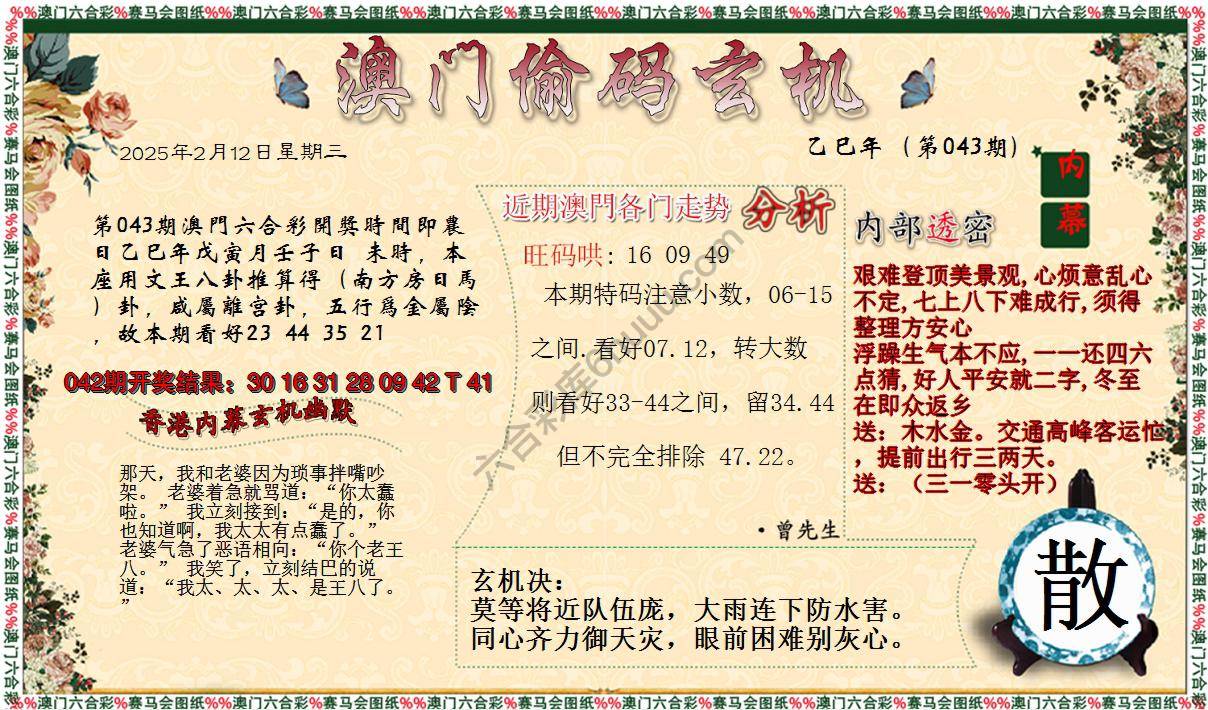 %%澳门六合彩%赛马会图纸%%澳门六合彩%赛马会图纸%%澳门六合彩%赛马会图纸%%澳门六合彩%赛马会图纸%%澳门六合彩%赛马会图纸%%澳门六合彩%赛马会图纸%%
澳门偷码玄机
2025年2月12日星期三
乙巳年（第043期）
内幕
第043期澳門六合彩開獎時間即農
日乙巳年戊寅月壬子日 未時，本
座用文王八卦推算得（南方房日馬
）卦，咸屬離宫卦，五行爲金屬陰
，故本期看好23 44 35 21
042期开奖结果：30 16 31 28 09 42 T 41
香港内幕玄机幽默
那天，我和老婆因为琐事拌嘴吵
架。 老婆着急就骂道：“你太蠢
啦。” 我立刻接到：“是的，你
也知道啊，我太太有点蠢了。”
老婆气急了恶语相向：“你个老王
八。” 我笑了，立刻结巴的说
道：“我太、太、太、是王八了。
”
近期澳門各门走势 分析
旺码哄: 16 09 49
本期特码注意小数，06-15
之间.看好07.12，转大数
则看好33-44之间，留34.44
但不完全排除 47.22。
·曾先生
内部透密
艰难登顶美景观,心烦意乱心
不定,七上八下难成行,须得
整理方安心
浮躁生气本不应,一一还四六
点猜,好人平安就二字,冬至
在即众返乡
送：木水金。交通高峰客运忙
，提前出行三两天。
送：（三一零头开）
玄机决：
莫等将近队伍庞，大雨连下防水害。
同心齐力御天灾，眼前困难别灰心。
散
六合彩库6huuu.com
%%澳门六合彩%赛马会图纸%%澳门六合彩%赛马会图纸%%澳门六合彩%赛马会图纸%%澳门六合彩%赛马会图纸%%澳门六合彩%赛马会图纸%%澳门六合彩%赛马会图纸%%